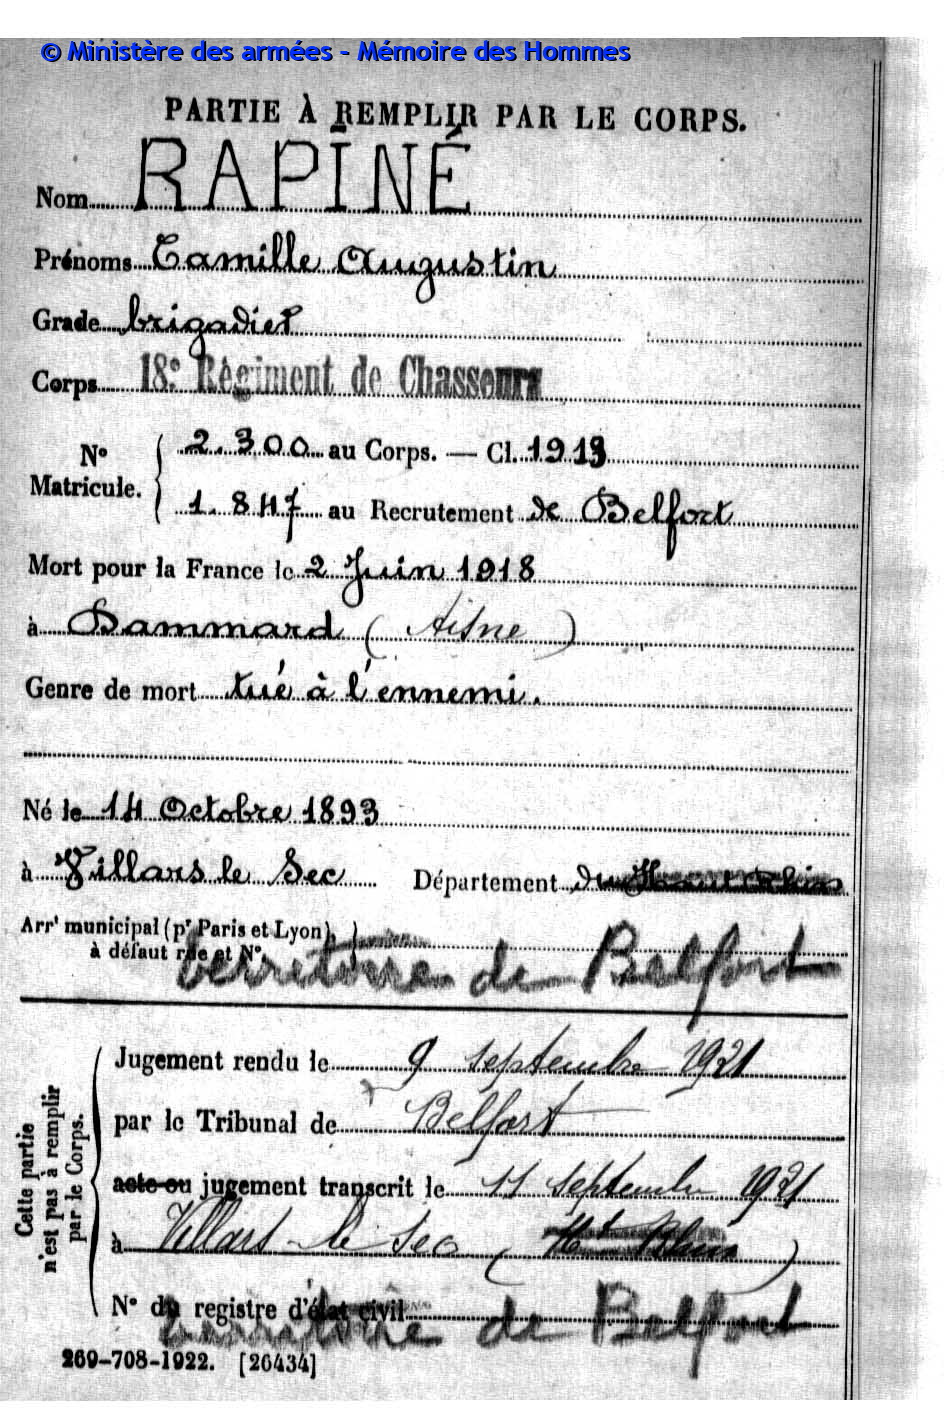 © Ministère des armées - Mémoire des Hommes
PARTIE À REMPLIR PAR LE CORPS.
Nom RAPINÉ
Prénoms Camille Augustin
Grade brigadier
Corps 18e Régiment de Chasseurs
N° Matricule. { 2.300 au Corps. — Cl. 1913
1.847 au Recrutement de Belfort
Mort pour la France le 2 Juin 1918
à Dammard (Aisne)
Genre de mort tué à l'ennemi.
Né le 14 Octobre 1893
à Villars le Sec Département du Haut Rhin
Arrt municipal (pr Paris et Lyon), }
à défaut rue et N°.
territoire de Belfort
Cette partie n'est pas à remplir par le Corps.
Jugement rendu le 9 septembre 1921
par le Tribunal de Belfort
acte ou jugement transcrit le 11 septembre 1921
à Villars-le Sec (Ht Rhin)
N° du registre d'état civil
territoire de Belfort
269-708-1922. [26434]